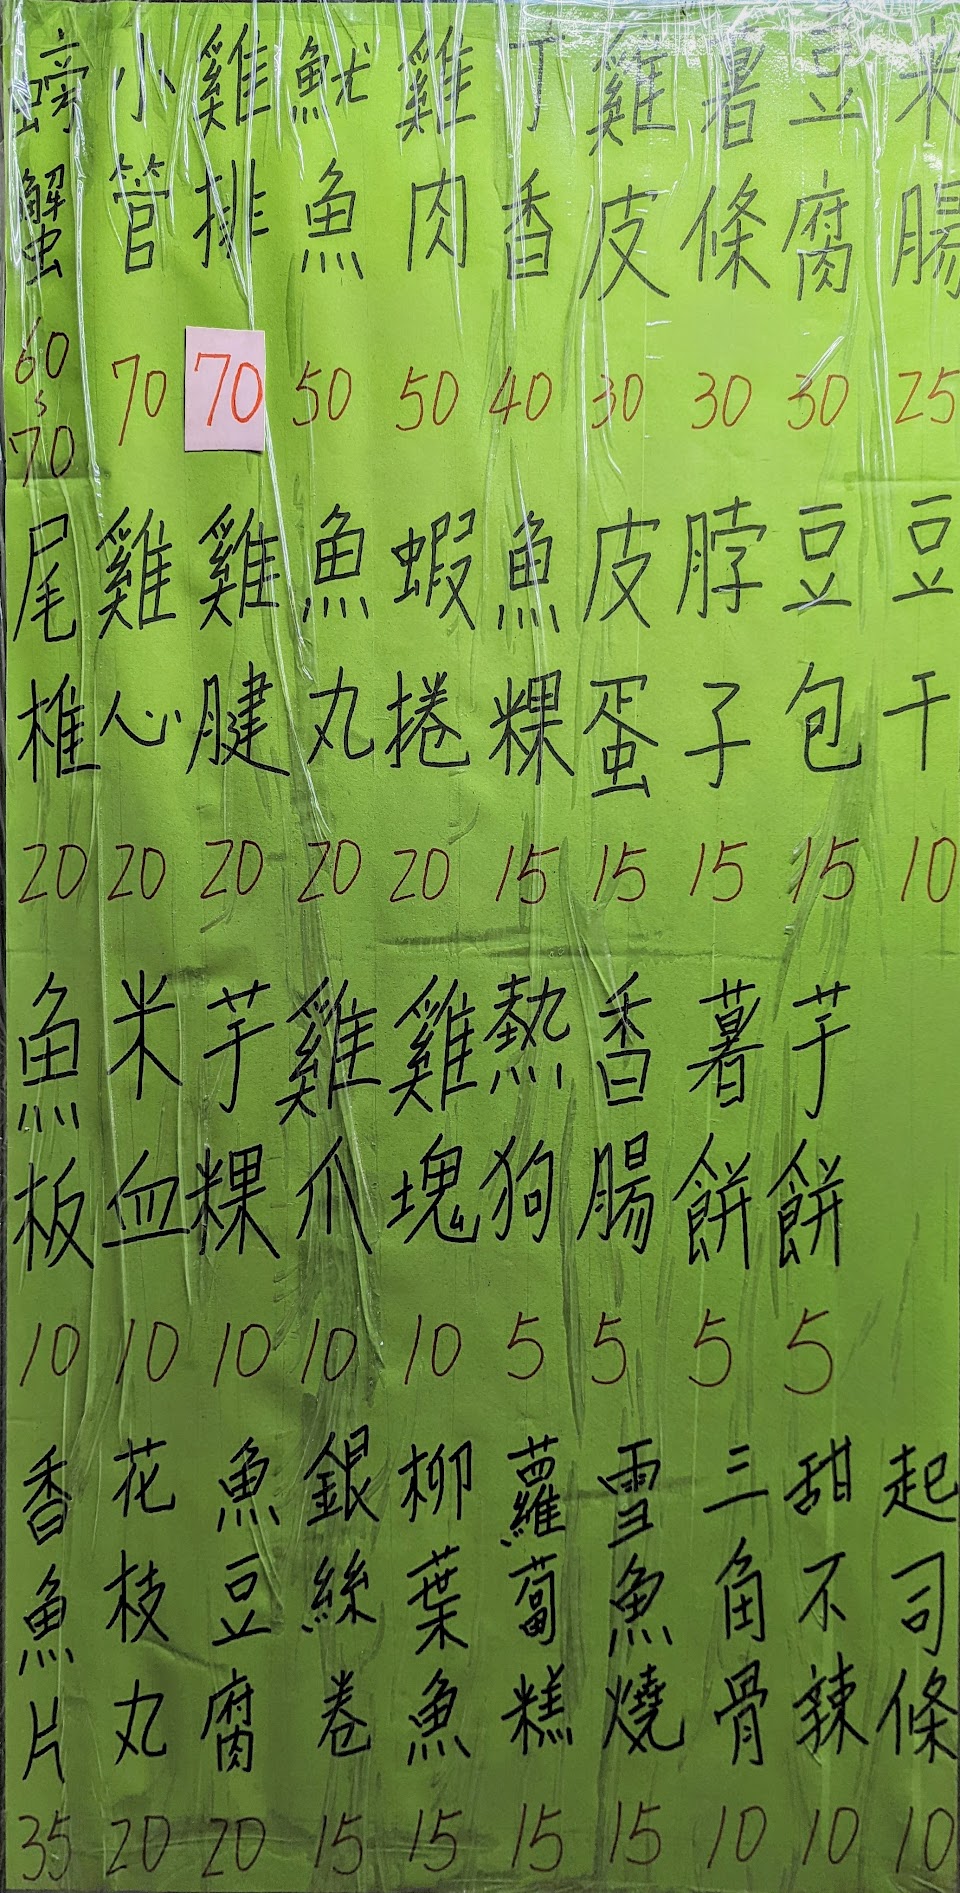 螃蟹 60~70
小管 70
雞排 70
魷魚 50
雞肉 50
丁香 40
雞皮 30
薯條 30
豆腐 30
米腸 25
尾椎 20
雞心 20
雞腱 20
魚丸 20
蝦捲 20
魚粿 15
皮蛋 15
脖子 15
豆包 15
豆干 10
魚板 10
米血 10
芋粿 10
雞爪 10
雞塊 10
熱狗 5
香腸 5
薯餅 5
芋餅 5
香魚片 35
花枝丸 20
魚豆腐 20
銀絲卷 15
柳葉魚 15
蘿蔔糕 15
雪魚燒 15
三角骨 10
甜不辣 10
起司條 10